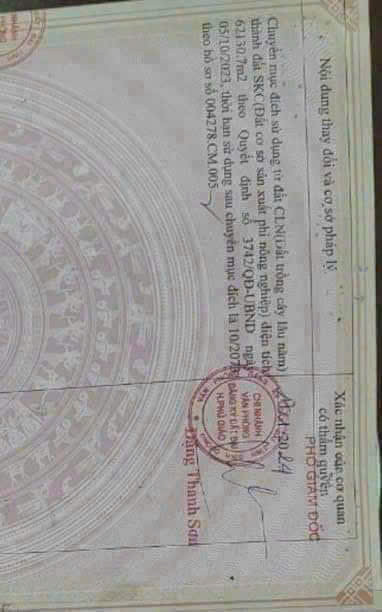 Nội dung thay đổi và cơ sở pháp lý
Xác nhận của cơ quan
có thẩm quyền
Chuyển mục đích sử dụng từ đất CLN(Đất trồng cây lâu năm)
thành đất SKC(Đất cơ sở sản xuất phi nông nghiệp) diện tích
62130,7m2 theo Quyết định số 3742/QĐ-UBND ngày
05/10/2023, thời hạn sử dụng sau chuyển mục đích là 10/207
theo hồ sơ số 004278.CM.005
PHÓ GIÁM ĐỐC
CHI NHÁNH
VĂN PHÒNG
ĐĂNG KÝ ĐẤT ĐAI
H.PHÚ GIÁO
Đặng Thanh Sơn